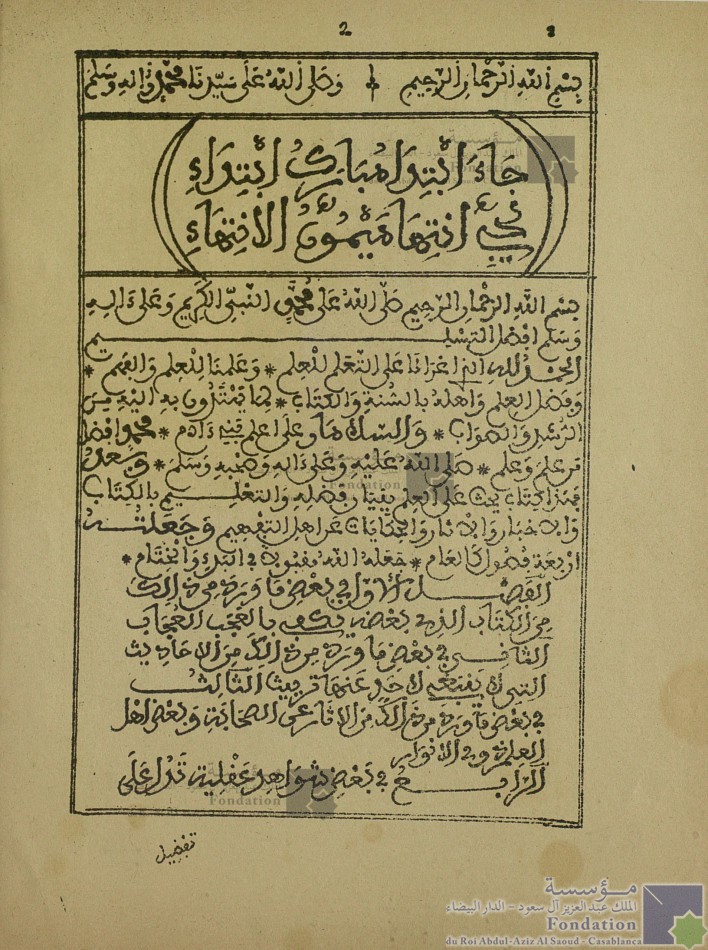 2
بسم الله الرحمان الرحيم وصلى الله على سيدنا محمد وءاله وسلم
جاء ابتدا مبارك ابتداء
في انتها ميمون الانتهاء
بسم الله الرحمان الرحيم صلى الله على محمد النبي الكريم وعلى ءاله
وسلم افضل التسليم
الحمد لله الذي على التعلم للعلم * وعلمنا للعلم والفهم *
وفضل العلم واهله بالسنة والكتاب * به اليه من
الرشد والصواب * والسلام على اعلم فيه ءادم * محمد افضل
من علم وعلم * صلى الله عليه وعلى ءاله وصحبه وسلم * وبعد
فهذا كتاب يحث على العلم ببيان فضله والتعليم بالكتاب
والاخبار والاثار والحكايات عن اهل التفهيم وجعلته
اربعة فصول * جعله الله مقبولا في البدء والختام *
الفصل الاول في بعض ما ورد من ذالك
من الكتاب الذي بعضه يكفي بالعجب العجاب
الثاني في بعض ما ورد من ذالك من الاحاديث
التي لا ينبغي لاحد عنها تريث الثالث
في بعض ما ورد من ذالك من الاثار عن الصحابة وبعض اهل
العلم وذوي الانوار
الرابع في بعض شواهد عقلية تدل على
تفضيل
مؤسسة
الملك عبد العزيز آل سعود - الدار البيضاء
Fondation
du Roi Abdul-Aziz Al Saoud - Casablanca